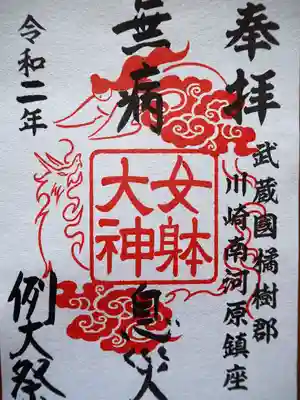 奉拝
武蔵國橘樹郡
川崎南河原鎮座
無病息災
女躰大神
令和二年
例大祭